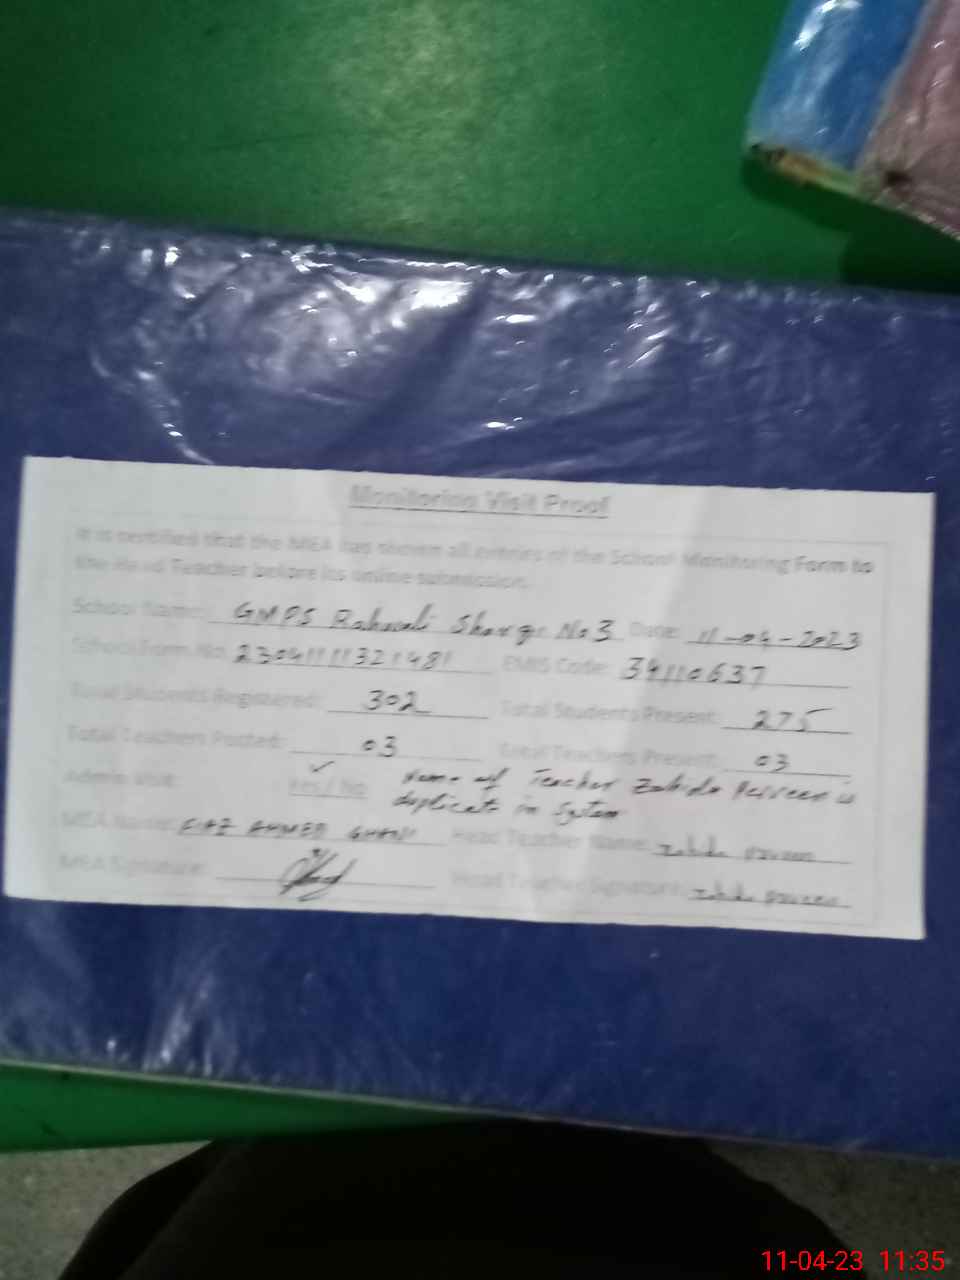 Monitoring Visit Proof
It is certified that the MEA has shown all entries of the School Monitoring Form to
the Head Teacher before its online submission.
School Name: GMPS Rahwali Sharqi No 3 Date: 11-04-2023
School Form No. 23041111321481 EMIS Code: 34110637
Total Students Registered: 302 Total Students Present: 275
Total Teachers Posted: 03 Total Teachers Present: 03
Admin Visit: Yes / No Name of Teacher Zahida Perveen is
duplicate in System
MEA Name: AHMED Head Teacher Name: Zahida Perveen
MEA Signature: Head Teacher Signature: Zahida Perveen
11-04-23 11:35